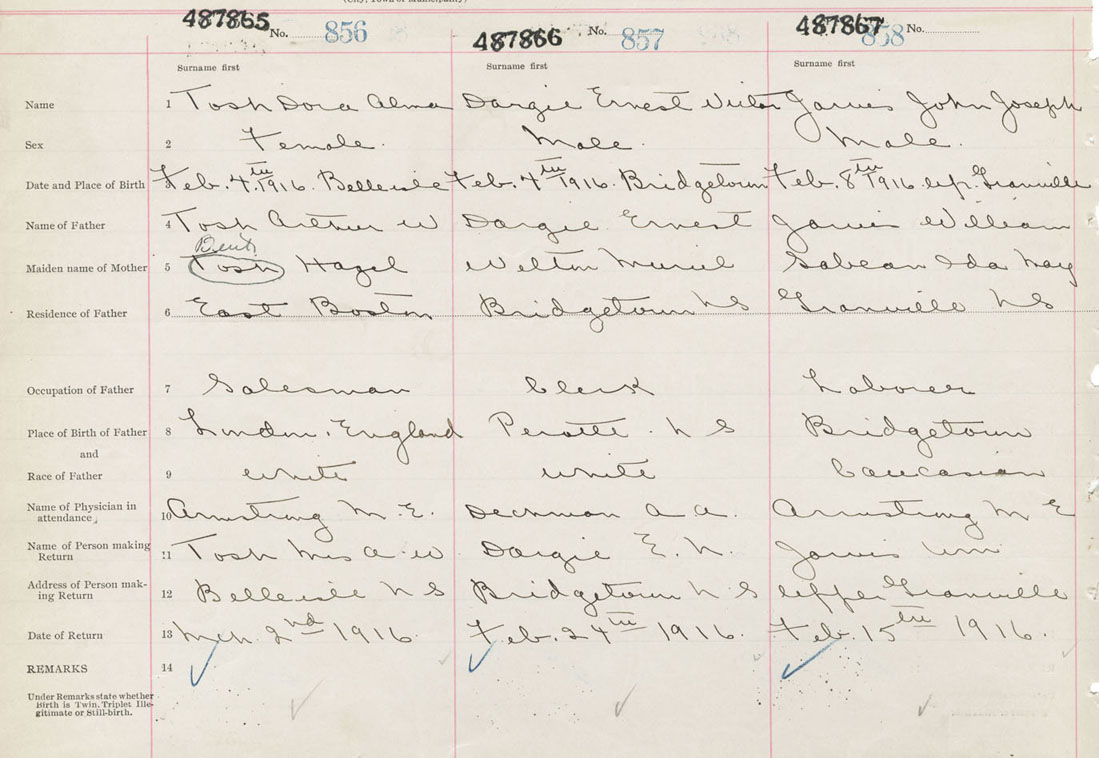 (City, Town or Municipality)
487865 No. 856 487866 No. 857 487867 858 No.
Surname first Surname first Surname first
Name 1 Tosh Dora Alma Dargie Ernest Victor Jarvis John Joseph
Sex 2 Female. Male. Male.
Date and Place of Birth 3 Feb. 4th 1916. Belleisle Feb. 4th 1916. Bridgetown Feb. 8th 1916 Up. Granville
Name of Father 4 Tosh Arthur W Dargie Ernest Jarvis William
Bent
Maiden name of Mother 5 Tosh Hazel Welton Muriel Sabean Ida May
Residence of Father 6 East Boston Bridgetown N S Granville N S
Occupation of Father 7 Salesman Clerk Laborer
Place of Birth of Father 8 London, England Perotte. N S Bridgetown
and
Race of Father 9 White White Caucasian
Name of Physician in
attendance, 10 Armstrong M. E. Deckman A A. Armstrong M E
Name of Person making
Return 11 Tosh Mrs A. W Dargie E. N. Jarvis Wm
Address of Person mak-
ing Return 12 Belleisle N S Bridgetown N S Upper Granville
Date of Return 13 Mch. 2nd 1916. Feb. 24th 1916. Feb. 15th 1916.
REMARKS 14
Under Remarks state whether
Birth is Twin, Triplet Ille-
gitimate or Still-birth.